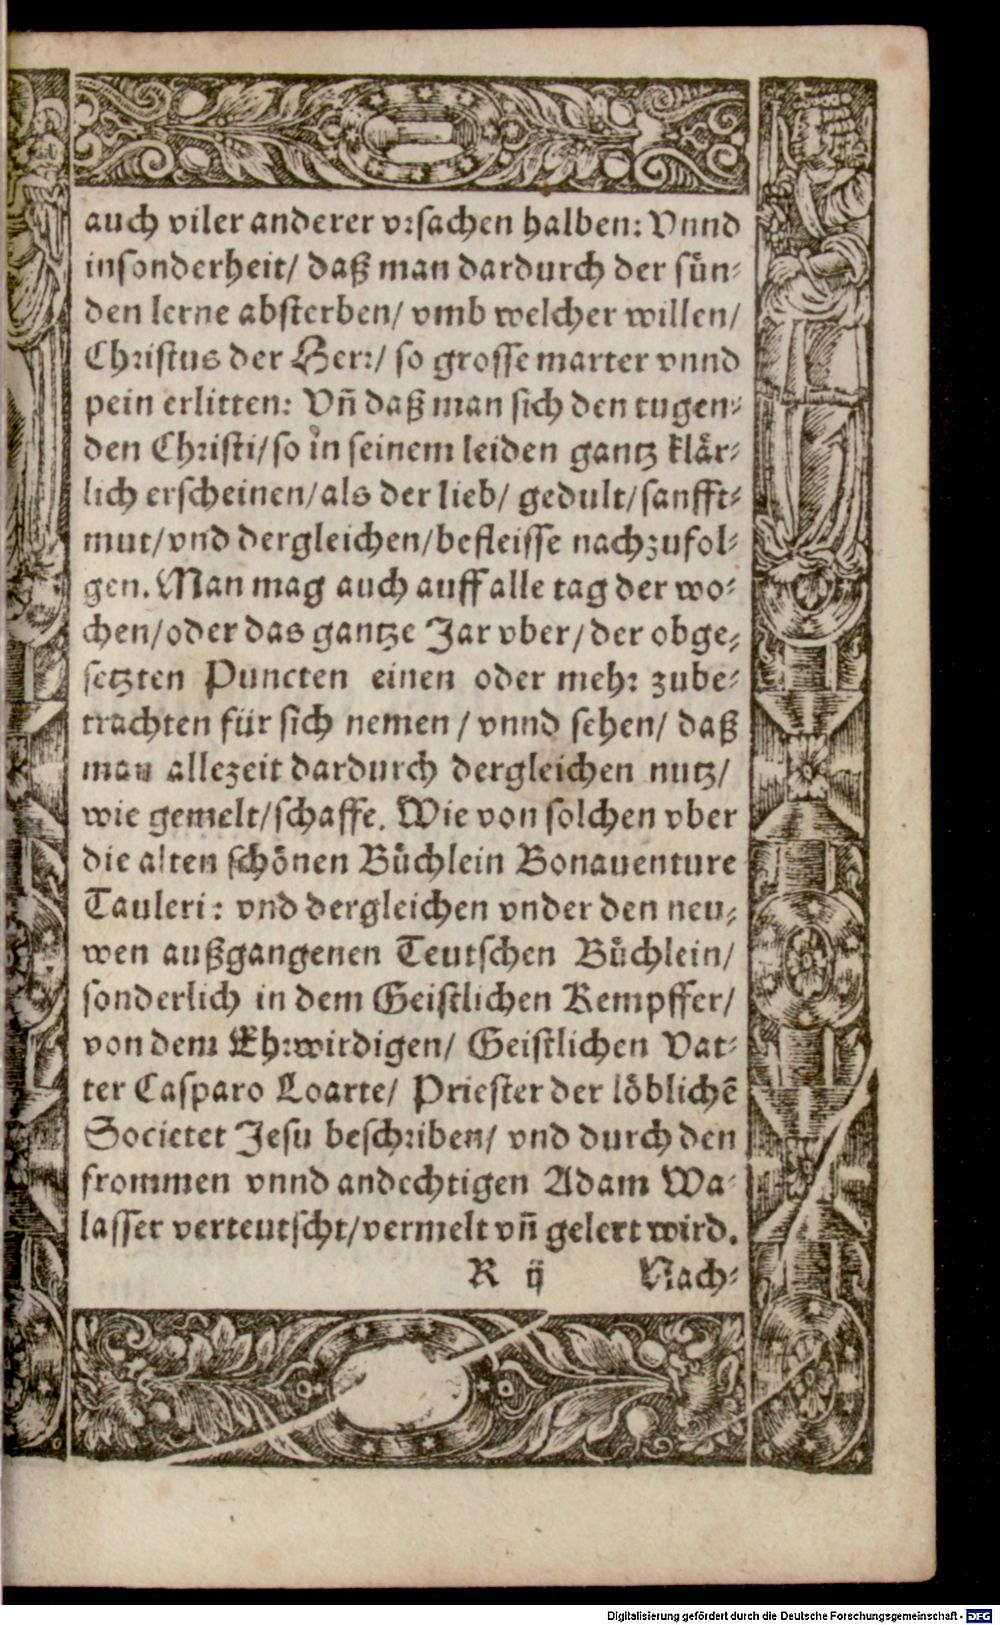 auch viler anderer vrsachen halben: Vnnd
insonderheit/ daß man dardurch der sün⸗
den lerne absterben/ vmb welcher willen/
Christus der Herr/ so grosse marter vnnd
pein erlitten: Vñ daß man sich den tugen⸗
den Christi/ so in seinem leiden gantz klär⸗
lich erscheinen/ als der lieb/ gedult/ sanfft⸗
mut/ vnd dergleichen/ befleisse nachzufol⸗
gen. Man mag auch auff alle tag der wo⸗
chen/ oder das gantze Jar vber/ der obge⸗
setzten Puncten einen oder mehr zube⸗
trachten für sich nemen/ vnnd sehen/ daß
man allezeit dardurch dergleichen nutz/
wie gemelt/ schaffe. Wie von solchen vber
die alten schönen Büchlein Bonauenture
Tauleri: vnd dergleichen vnder den neu⸗
wen außgangenen Teutschen Büchlein/
sonderlich in dem Geistlichen Kempffer/
von dem Ehrwirdigen/ Geistlichen Vat⸗
ter Casparo Loarte/ Priester der löblichẽ
Societet Jesu beschriben/ vnd durch den
frommen vnnd andechtigen Adam Wa⸗
lasser verteutscht/ vermelt vñ gelert wird.
R ij Nach⸗
Digitalisierung gefördert durch die Deutsche Forschungsgemeinschaft - DFG